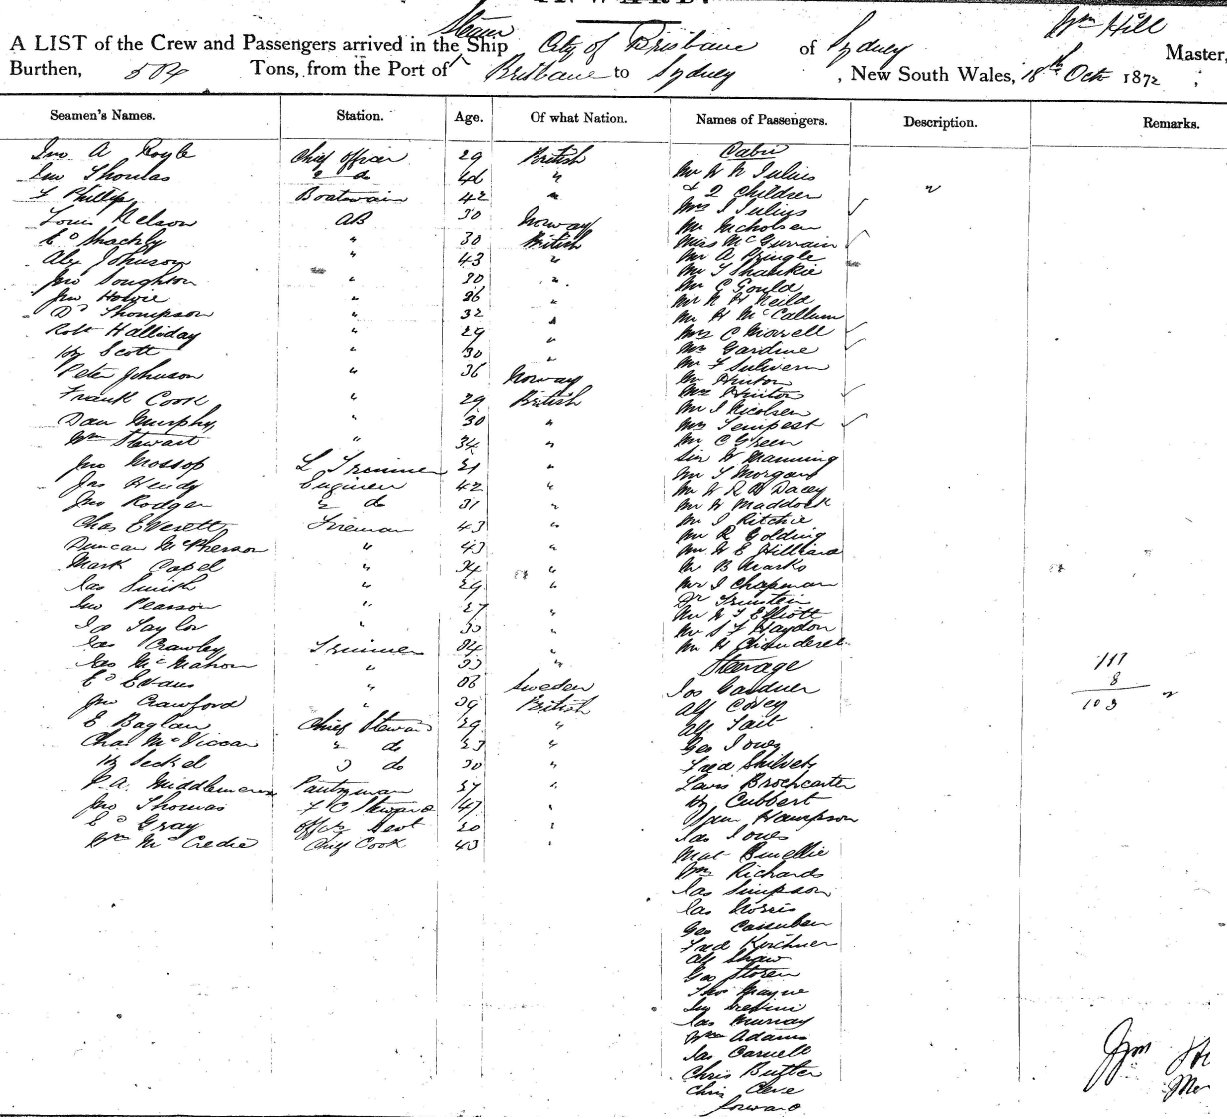 Steam Wm Hill
A LIST of the Crew and Passengers arrived in the Ship City of Brisbane of Sydney Master,
Burthen, 504 Tons, from the Port of Brisbane to Sydney, New South Wales, 18th Oct 1872;
Seamen's Names. Station. Age. Of what Nation. Names of Passengers. Description. Remarks.
Jno A Royle Chief Officer 29 British
Jno Thomas 2 do 46 "
F Phillips Boatswain 42 "
Louis Nelson AB 30 Norway
Ed Shackly " 30 British
Alex Johnson " 43 "
Jno Soughton " 30 "
Jno Howie " 26 "
Dd Thompson " 32 "
Robt Halliday " 29 "
Hy Scott " 30 "
Peter Johnson " 36 Norway
Frank Cook " 29 British
Dan Murphy " 30 "
Wm Stewart " 34 "
Jno Mossop L Trimmer 21 "
Jas Hendy Engineer 42 "
Jno Rodger 2 do 31 "
Chas Everett Fireman 43 "
Duncan McPherson " 43 "
Mark Capel " 34 "
Jas Smith " 29 "
Jno Pearson " 27 "
Jas Taylor " 30 "
Jas Crawley Trimmer 34 "
Jas McMahon " 33 "
Ed Evans " 38 Sweden
Jno Crawford " 39 British
E Baglan Chief Steward 29 "
Chas McViccar 2 do 23 "
Hy Seckel 3 do 30 "
Middlemess Pantryman 27 "
Jno Thomas F C Steward 47 "
Ed Gray Offrs Sevt 20 "
Wm McCredie Chief Cook 43 "
Cabin
Mr W N Julius
& 2 Children "
Mrs J Julius
Mr Nicholson
Miss McGurrain
Mr A Pringle
Mr T Shankie
Mr C Gould
Mr N H Neild
Mr H McCallum
Mrs C Morell
Mrs Gardine
Mr F Sulivern
Mr Hinton
Mrs Hinton
Mr J Nicolsen
Mrs Tempest
Mr C Green
Sir W Manning
Mr T Morgan
Mr W R B Dacey
Mr W Maddock
Mr J Ritchie
Mr R Golding
Mr W E Hilliard
Mr B Marks
Mr J Chapman
Dr
Mr W T Elliott
Mr S F Haydon
Mr H
Steerage
Jos Gardner
Alf Covey
Alf Tait
Geo Jones
Fred
Lewis
Hy Cubbert
Hampson
Jas Jones
Mat
Wm Richards
Jas Simpson
Jas Norris
Geo
Fred Kirchner
Alf Shaw
Geo Storen
Thos Mayne
Jas Murray
Wm Adams
Jas Carvell
Chris Butler
Chris
forward
111
8
103
Wm